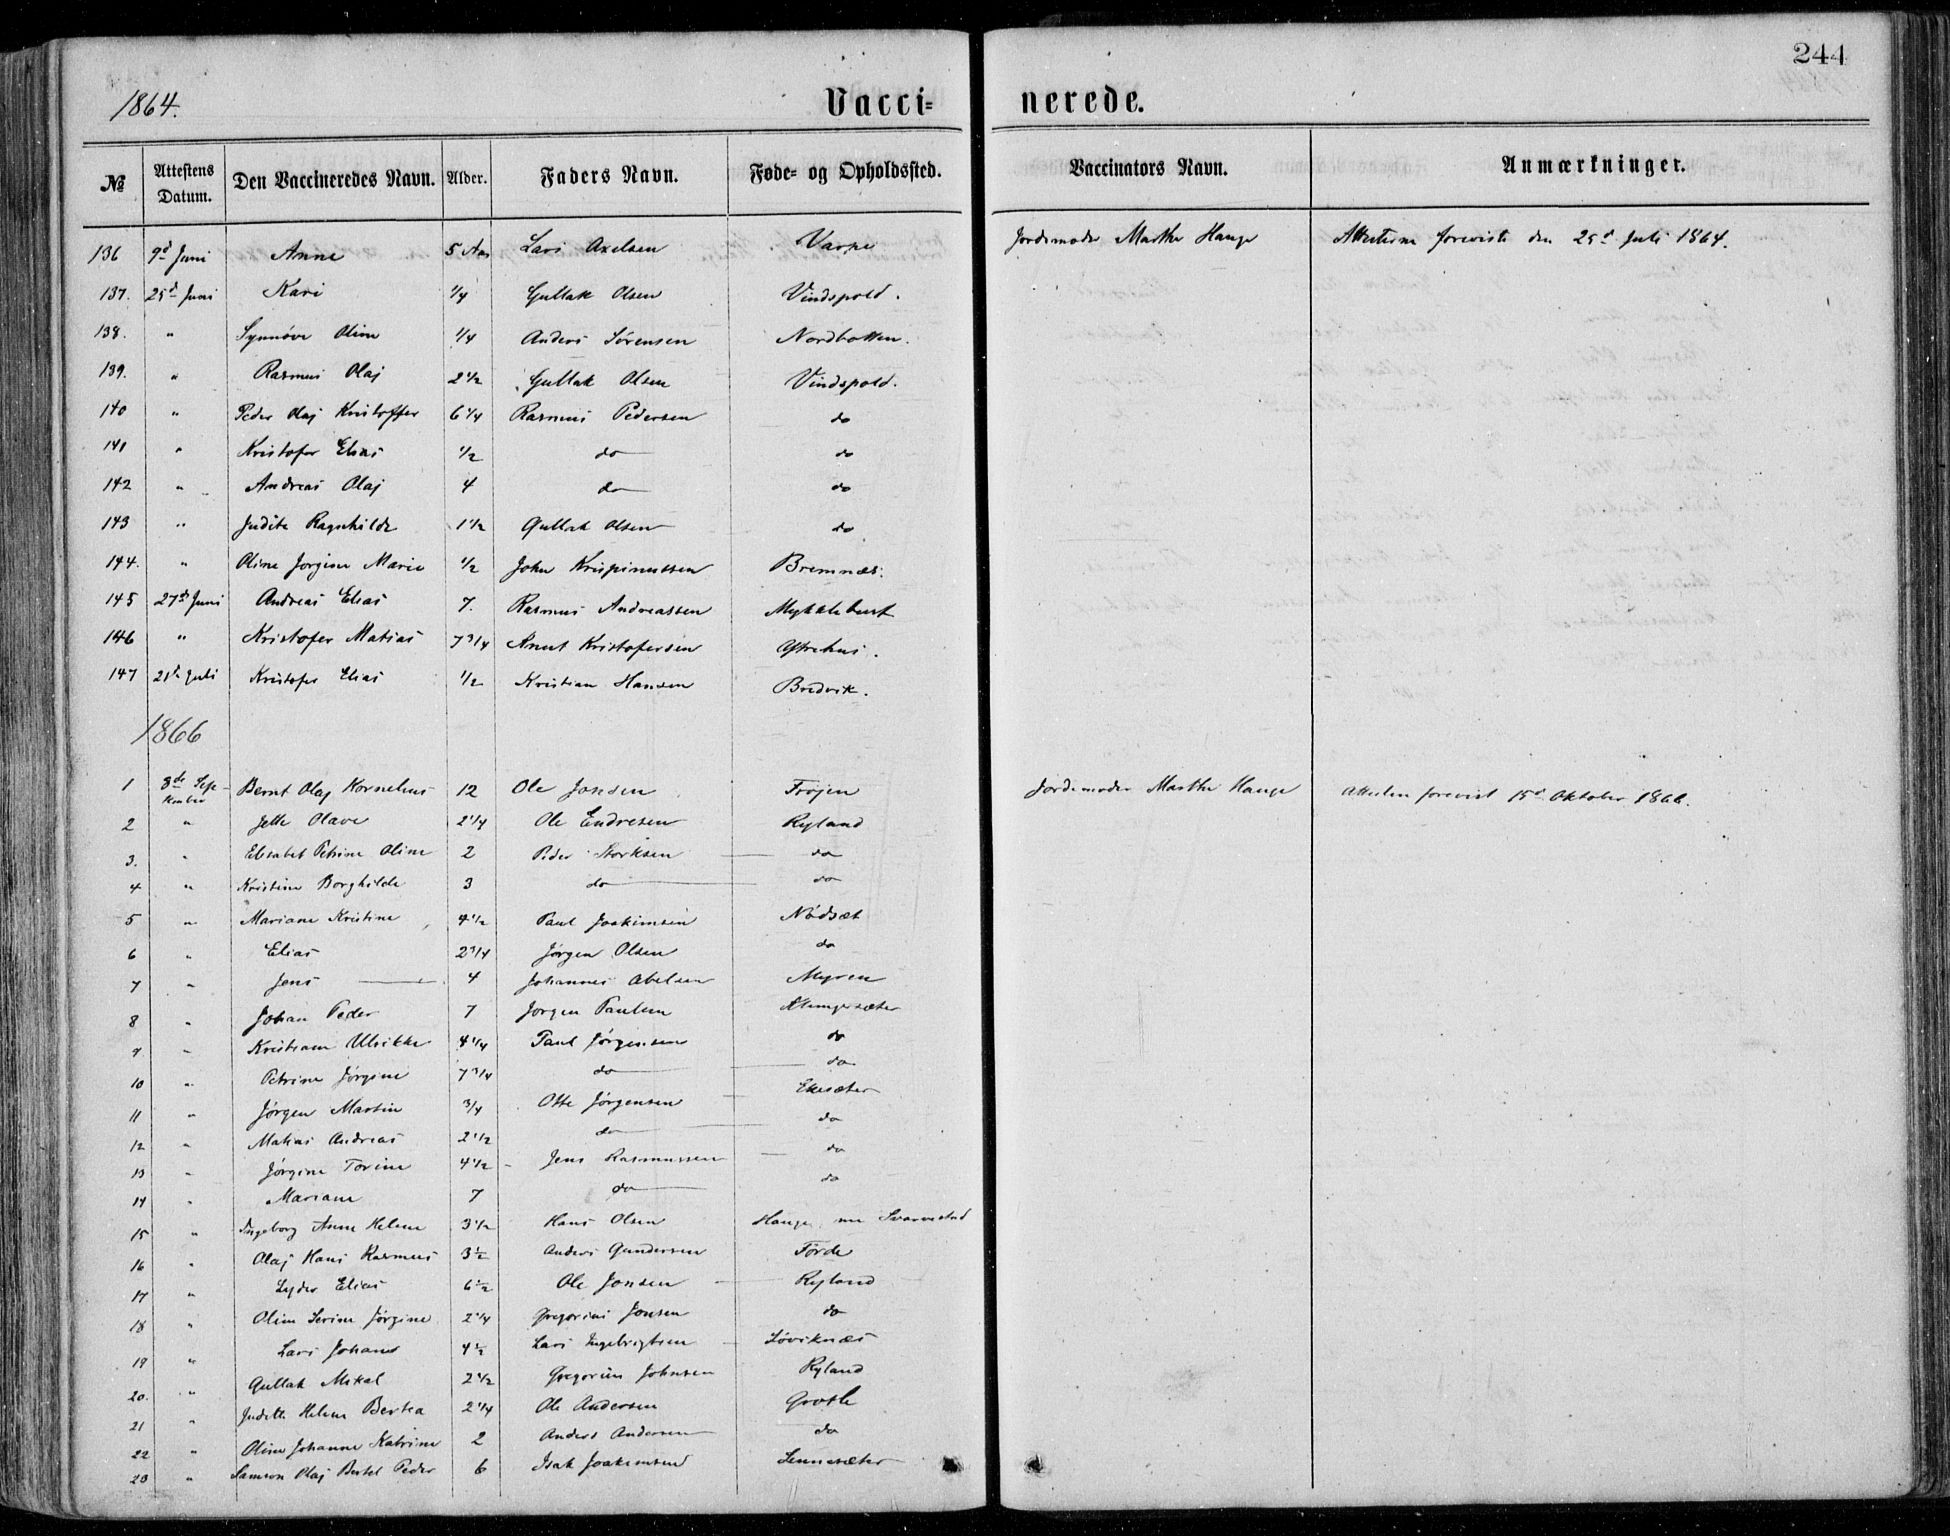 244
1864. Vacci= nerede.
№ Attestens Datum. Den Vaccineredes Navn. Alder. Faders Navn. Føde- og Opholdssted. Vaccinators Navn. Anmærkninger.
136 9d Juni Anne 5 Aar Lars Axelsen Varpe Jordemoder Marthe Hauge Attesterne foreviste den 25d Juli 1864.
137. 25d Juni Kari 1/4 Gullak Olsen Vindspold.
138. " Synnøve Oline 1/4 Anders Sørensen Nordbotten.
139. " Rasmus Olaj 2 1/2 Gullak Olsen Vindspold.
140 " Peder Olaj Kristoffer 6 1/4 Rasmus Pedersen do
141 " Kristofer Elias 1/2 do do
142 " Andreas Olaj 4 do do
143 " Judite Ragnhilde 1 1/2 Gullak Olsen do
144. " Oline Jørgine Marie 1/2 John Krispinussen Bremnæs.
145 27d Juni Andreas Elias 7. Rasmus Andreassen Myklebust
146 " Kristofer Matias 7 3/4 Knut Kristofersen Ystehus.
147 21d Juli Kristofer Elias 1/2 Kristian Hansen Bredvik.
1866
1 3de September Bernt Olaj Kornelius 12 Ole Jonsen Frøjen Jordemoder Marthe Hauge Attesten forevist 15d Oktober 1866.
2 " Jette Olave 2 1/4 Ole Endresen Ryland
3. " Elisabet Petrine Oline 2 Peder Storksen do
4 " Kristine Borghilde 3 do do
5 " Mariane Kristine 4 1/2 Paul Joakimsen Nødsæt
6 " Elias 2 3/4 Jørgen Olsen do
7 " Jens 4 Johannes Abelsen Myren
8 " Johan Peder 7 Jørgen Paulsen
9 " Kristiane Ulrikke 4 1/4 Paul Jørgensen do
10 " Petrine Jørgine 7 3/4 do do
11 " Jørgen Martin 3/4 Otte Jørgensen Ekesæter
12 " Matias Andreas 2 1/2 do do
13 " Jørgine Torine 4 1/2 Jens Rasmussen do
14 " Mariane 7 do do
15 " Ingeborg Anne Helene 3 1/2 Hans Olsen Hauge
16 " Olaj Hans Rasmus 3 1/2 Anders Gundersen Førde
17 " Lyder Elias 6 1/2 Ole Jonsen Ryland
18 " Oline Serine Jørgine 2 1/4 Gregorius Jonsen do
19 " Lars Johan 4 1/2 Lars Ingebrigtsen Løviknæs
20. " Gullak Mikal 2 1/2 Gregorius Johnsen Ryland
21 " Judith Helene Bertea 2 1/4 Ole Andersen Grotle
22 " Oline Johanne Katrine 2 Anders Andersen do
23 " Samson Olaj Bertel Peder 6 Isak Joakimsen Lennesæter